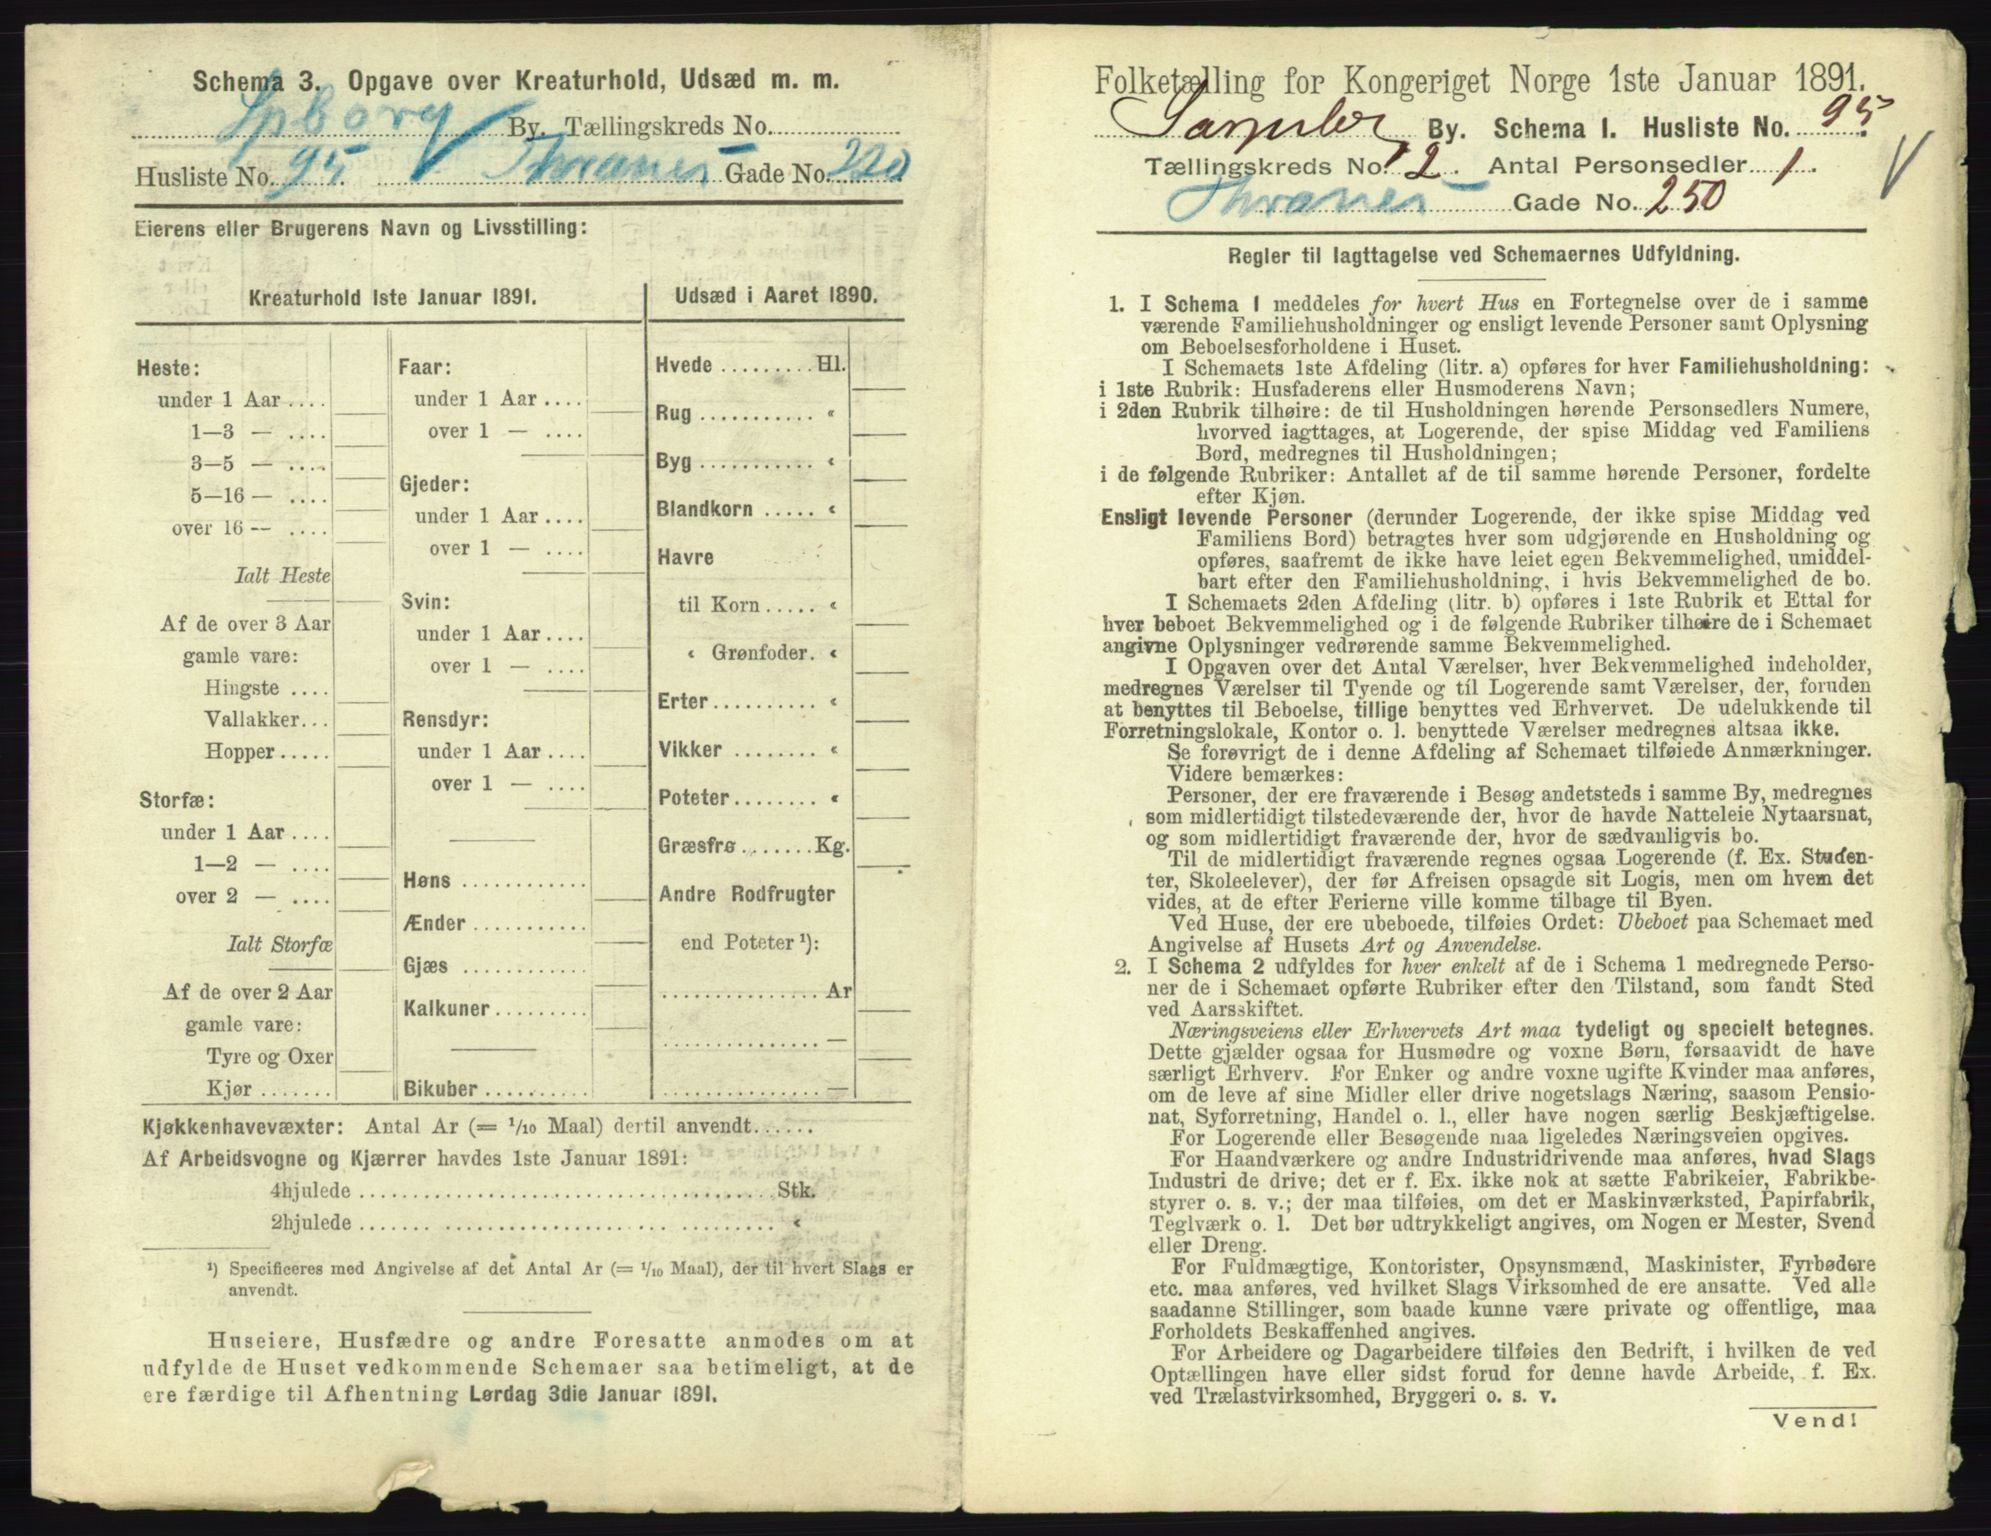 Schema 3. Opgave over Kreaturhold, Udsæd m. m.
Spborg By. Tællingskreds No.
Husliste No. 95. Thranes Gade No. 220
Eierens eller Brugerens Navn og Livsstilling:
Kreaturhold 1ste Januar 1891.
Heste:
under 1 Aar ....
1—3 — ....
3—5 — ....
5—16 — ....
over 16 — ....
Ialt Heste
Af de over 3 Aar
gamle vare:
Hingste ....
Vallakker...
Hopper.....
Storfæ:
under 1 Aar ....
1—2 — ....
over 2 — ....
Ialt Storfæ
Af de over 2 Aar
gamle vare:
Tyre og Oxer
Kjør .......
Faar:
under 1 Aar ....
over 1 — ....
Gjeder:
under 1 Aar ....
over 1 — ....
Svin:
under 1 Aar ....
over 1 — ....
Rensdyr:
under 1 Aar ....
over 1 — ....
Høns ............
Ænder ...........
Gjæs ............
Kalkuner.........
Bikuber..........
Udsæd i Aaret 1890.
Hvede ......... Hl.
Rug ........... «
Byg ........... «
Blandkorn ..... «
Havre
til Korn ..... «
« Grønfoder. «
Erter.......... «
Vikker ........ «
Poteter........ «
Græsfrø ....... Kg.
Andre Rodfrugter
end Poteter ¹):
............... Ar
............... —
............... —
Kjøkkenhavevæxter: Antal Ar (= 1/10 Maal) dertil anvendt......
Af Arbeidsvogne og Kjærrer havdes 1ste Januar 1891:
4hjulede ........ Stk.
2hjulede ........ «
¹) Specificeres med Angivelse af det Antal Ar (= 1/10 Maal), der til hvert Slags er
anvendt.
Huseiere, Husfædre og andre Foresatte anmodes om at
udfylde de Huset vedkommende Schemaer saa betimeligt, at de
ere færdige til Afhentning Lørdag 3die Januar 1891.
Folketælling for Kongeriget Norge 1ste Januar 1891.
Sarpsborg By. Schema 1. Husliste No. 95.
Tællingskreds No. 2. Antal Personsedler 1.
Thranes Gade No. 250
Regler til Iagttagelse ved Schemaernes Udfyldning.
1. I Schema 1 meddeles for hvert Hus en Fortegnelse over de i samme
værende Familiehusholdninger og ensligt levende Personer samt Oplysning
om Beboelsesforholdene i Huset.
I Schemaets 1ste Afdeling (litr. a) opføres for hver Familiehusholdning:
i 1ste Rubrik: Husfaderens eller Husmoderens Navn;
i 2den Rubrik tilhøire: de til Husholdningen hørende Personsedlers Numere,
hvorved iagttages, at Logerende, der spise Middag ved Familiens
Bord, medregnes til Husholdningen;
i de følgende Rubriker: Antallet af de til samme hørende Personer, fordelte
efter Kjøn.
Ensligt levende Personer (derunder Logerende, der ikke spise Middag ved
Familiens Bord) betragtes hver som udgjørende en Husholdning og
opføres, saafremt de ikke have leiet egen Bekvemmelighed, umiddel-
bart efter den Familiehusholdning, i hvis Bekvemmelighed de bo.
I Schemaets 2den Afdeling (litr. b) opføres i 1ste Rubrik et Ettal for
hver beboet Bekvemmelighed og i de følgende Rubriker tilhøire de i Schemaet
angivne Oplysninger vedrørende samme Bekvemmelighed.
I Opgaven over det Antal Værelser, hver Bekvemmelighed indeholder,
medregnes Værelser til Tyende og til Logerende samt Værelser, der, foruden
at benyttes til Beboelse, tillige benyttes ved Erhvervet. De udelukkende til
Forretningslokale, Kontor o. l. benyttede Værelser medregnes altsaa ikke.
Se forøvrigt de i denne Afdeling af Schemaet tilføiede Anmærkninger.
Videre bemærkes:
Personer, der ere fraværende i Besøg andetsteds i samme By, medregnes
som midlertidigt tilstedeværende der, hvor de havde Natteleie Nytaarsnat,
og som midlertidigt fraværende der, hvor de sædvanligvis bo.
Til de midlertidigt fraværende regnes ogsaa Logerende (f. Ex. Studen-
ter, Skoleelever), der før Afreisen opsagde sit Logis, men om hvem det
vides, at de efter Ferierne ville komme tilbage til Byen.
Ved Huse, der ere ubeboede, tilføies Ordet: Ubeboet paa Schemaet med
Angivelse af Husets Art og Anvendelse.
2. I Schema 2 udfyldes for hver enkelt af de i Schema 1 medregnede Perso-
ner de i Schemaet opførte Rubriker efter den Tilstand, som fandt Sted
ved Aarsskiftet.
Næringsveiens eller Erhvervets Art maa tydeligt og specielt betegnes.
Dette gjælder ogsaa for Husmødre og voxne Børn, forsaavidt de have
særligt Erhverv. For Enker og andre voxne ugifte Kvinder maa anføres,
om de leve af sine Midler eller drive nogetslags Næring, saasom Pensio-
nat, Syforretning, Handel o. l., eller have nogen særlig Beskjæftigelse.
For Logerende eller Besøgende maa ligeledes Næringsveien opgives.
For Haandværkere og andre Industridrivende maa anføres, hvad Slags
Industri de drive; det er f. Ex. ikke nok at sætte Fabrikeier, Fabrikbe-
styrer o. s. v.; der maa tilføies, om det er Maskinværksted, Papirfabrik,
Teglværk o. l. Det bør udtrykkeligt angives, om Nogen er Mester, Svend
eller Dreng.
For Fuldmægtige, Kontorister, Opsynsmænd, Maskinister, Fyrbødere
etc. maa anføres, ved hvilket Slags Virksomhed de ere ansatte. Ved alle
saadanne Stillinger, som baade kunne være private og offentlige, maa
Forholdets Beskaffenhed angives.
For Arbeidere og Dagarbeidere tilføies den Bedrift, i hvilken de ved
Optællingen have eller sidst forud for denne havde Arbeide, f. Ex.
ved Trælastvirksomhed, Bryggeri o. s. v.
Vend!